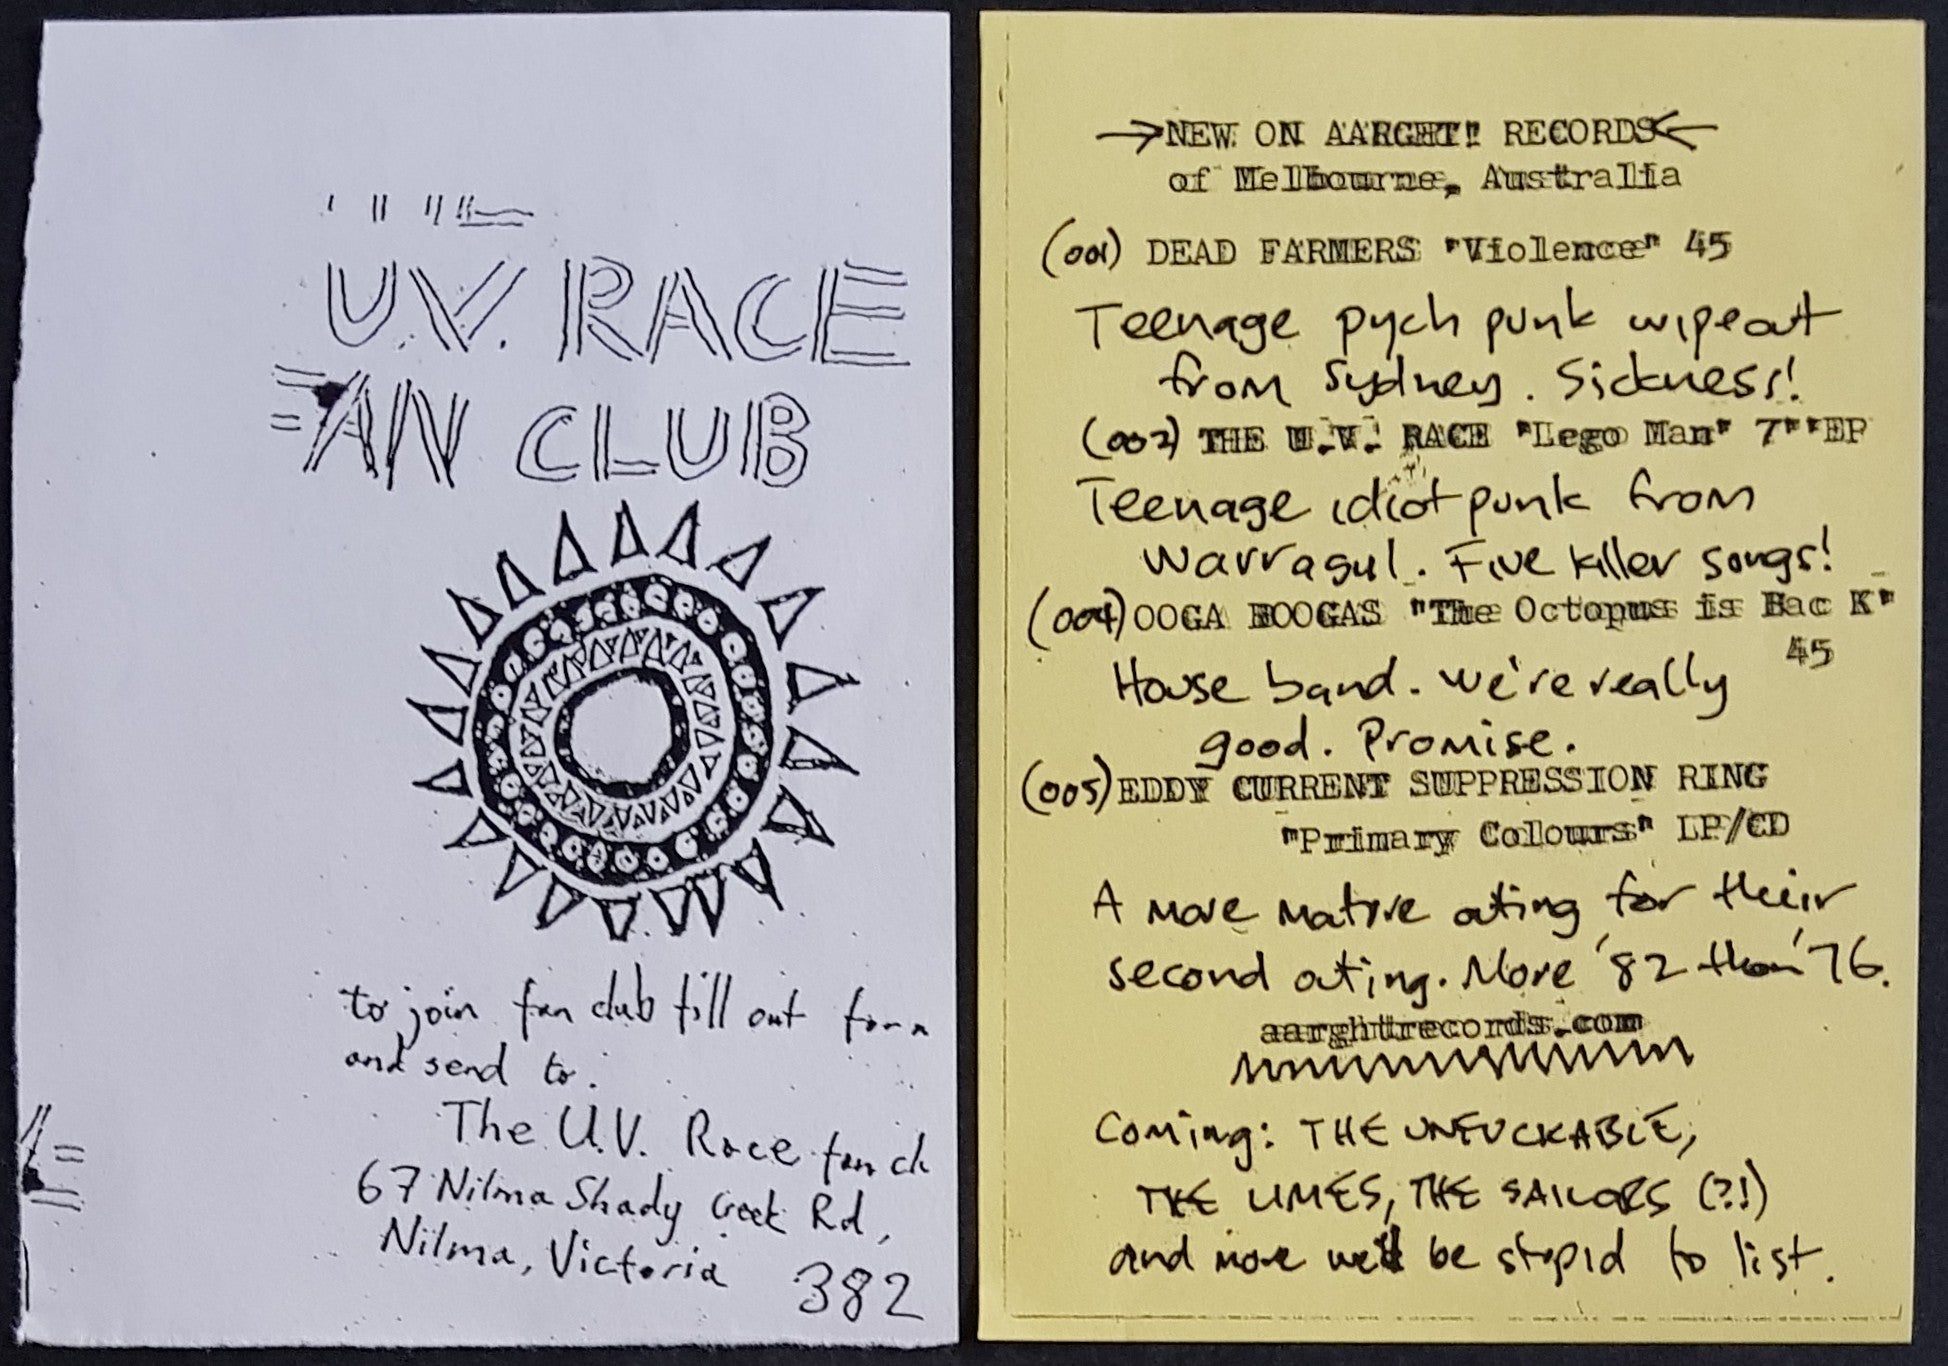 U.V. RACE
FAN CLUB
to join fan club fill out form
and send to.
The U.V. Race fan cl
67 Nilma Shady Creek Rd,
Nilma, Victoria 382
→NEW ON AARGHT! RECORDS←
of Melbourne, Australia
(001) DEAD FARMERS "Violence" 45
Teenage pych punk wipeout
from Sydney. Sickness!
(002) THE U.V. RACE "Lego Man" 7""EP
Teenage idiot punk from
Warragul. Five killer songs!
(004) OOGA BOOGAS "The Octopus is Bac K"
45
House band. We're really
good. Promise.
(005) EDDY CURRENT SUPPRESSION RING
"Primary Colours" LP/CD
A more mature outing for their
second outing. More '82 than '76.
aarghtrecords.com
Coming: THE UNFUCKABLE,
THE LIMES, THE SAILORS (?!)
and more we'd be stupid to list.